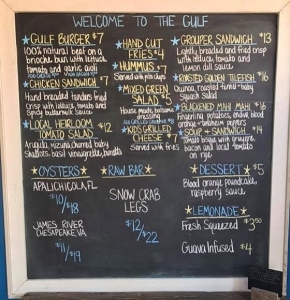 WELCOME TO THE GULF
★GULF BURGER $7
100% natural beef on a
brioche bun with lettuce,
tomato and garlic aioli
★CHICKEN SANDWICH $7
Hand breaded tenders fried
crisp with lettuce, tomato and
Spicy buttermilk sauce
★LOCAL HEIRLOOM $12
TOMATO SALAD
Arugula, baby
shallots, basil vinaigrette,
★HAND CUT
FRIES $4
★HUMMUS $7
Served with pita chips
★MIXED GREEN
SALAD $5
House made balsamic
dressing
★KIDS GRILLED
CHEESE $7
Served with fries
★GROUPER SANDWICH $13
Lightly breaded and fried crisp
with lettuce, tomato and
lemon dill sauce
★ROASTED GOLDEN TILEFISH $16
Quinoa, roasted
squash
★BLACKENED MAHI MAHI $16
Fingerling potatoes, blood
orange
★SOUP & SANDWICH $14
Tomato bisque with
bacon and local tomato
on rye
★OYSTERS★
APALACHICOLA, FL
$10/$18
JAMES RIVER
CHESAPEAKE, VA
$11/$19
★RAW BAR★
SNOW CRAB
LEGS
$12/$22
★DESSERT★ $5
Blood orange pound cake,
raspberry sauce
★LEMONADE★
Fresh Squeezed $3.50
Guava Infused $4